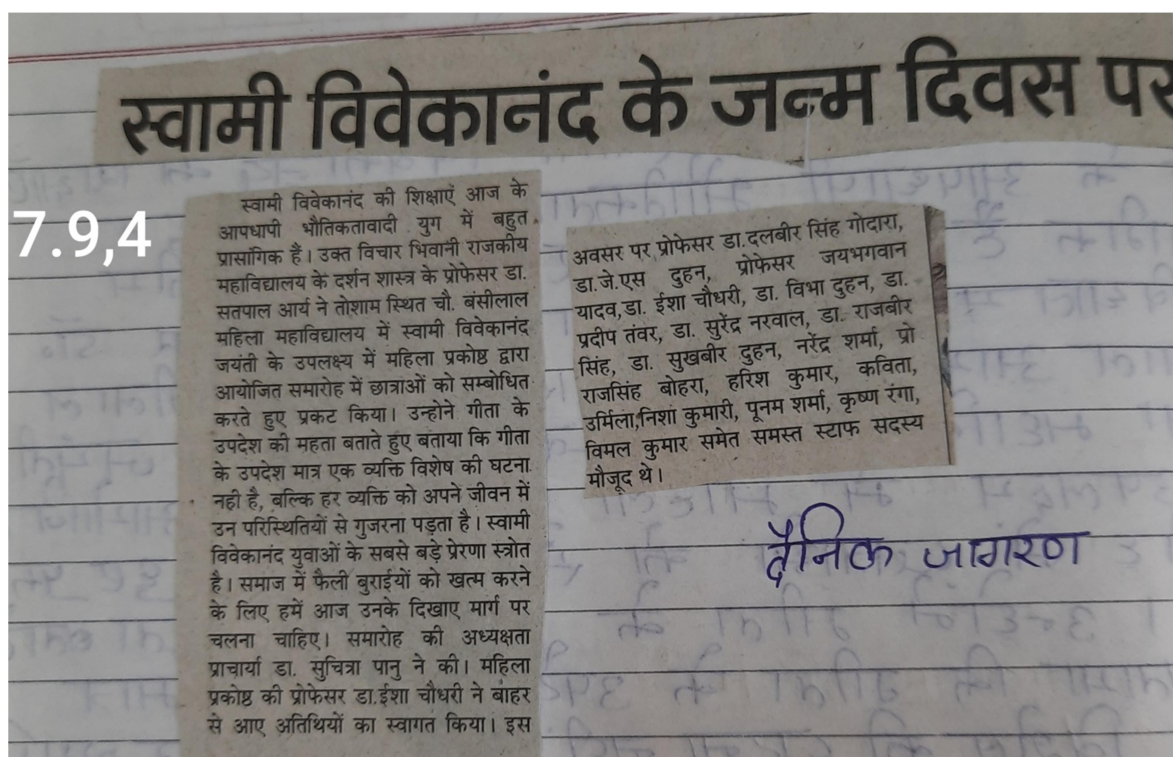 स्वामी विवेकानंद के जन्म दिवस पर
7.9,4
स्वामी विवेकानंद की शिक्षाएं आज के
आपधापी भौतिकतावादी युग में बहुत
प्रासांगिक हैं। उक्त विचार भिवानी राजकीय
महाविद्यालय के दर्शन शास्त्र के प्रोफेसर डा.
सतपाल आर्य ने तोशाम स्थित चौ. बंसीलाल
महिला महाविद्यालय में स्वामी विवेकानंद
जयंती के उपलक्ष्य में महिला प्रकोष्ठ द्वारा
आयोजित समारोह में छात्राओं को सम्बोधित
करते हुए प्रकट किया। उन्होने गीता के
उपदेश की महता बताते हुए बताया कि गीता
के उपदेश मात्र एक व्यक्ति विशेष की घटना
नही है, बल्कि हर व्यक्ति को अपने जीवन में
उन परिस्थितियों से गुजरना पड़ता है। स्वामी
विवेकानंद युवाओं के सबसे बड़े प्रेरणा स्त्रोत
है। समाज में फैली बुराईयों को खत्म करने
के लिए हमें आज उनके दिखाए मार्ग पर
चलना चाहिए। समारोह की अध्यक्षता
प्राचार्या डा. सुचित्रा पानु ने की। महिला
प्रकोष्ठ की प्रोफेसर डा.ईशा चौधरी ने बाहर
से आए अतिथियों का स्वागत किया। इस
अवसर पर प्रोफेसर डा.दलबीर सिंह गोदारा,
डा.जे.एस दुहन, प्रोफेसर जयभगवान
यादव,डा. ईशा चौधरी, डा. विभा दुहन, डा.
प्रदीप तंवर, डा. सुरेंद्र नरवाल, डा. राजबीर
सिंह, डा. सुखबीर दुहन, नरेंद्र शर्मा, प्रो
राजसिंह बोहरा, हरिश कुमार, कविता,
उर्मिला,निशा कुमारी, पूनम शर्मा, कृष्ण रंगा,
विमल कुमार समेत समस्त स्टाफ सदस्य
मौजूद थे।
दैनिक जागरण